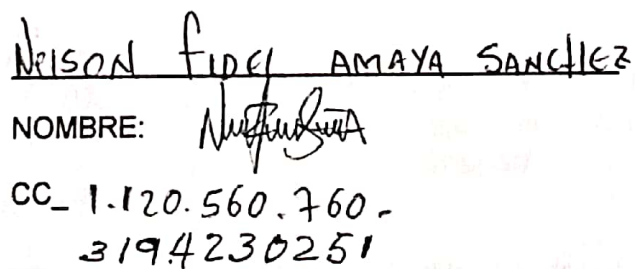 Nelson Fidel AMAYA SANCHEZ
NOMBRE:
CC_ 1.120.560.760-
3194230251